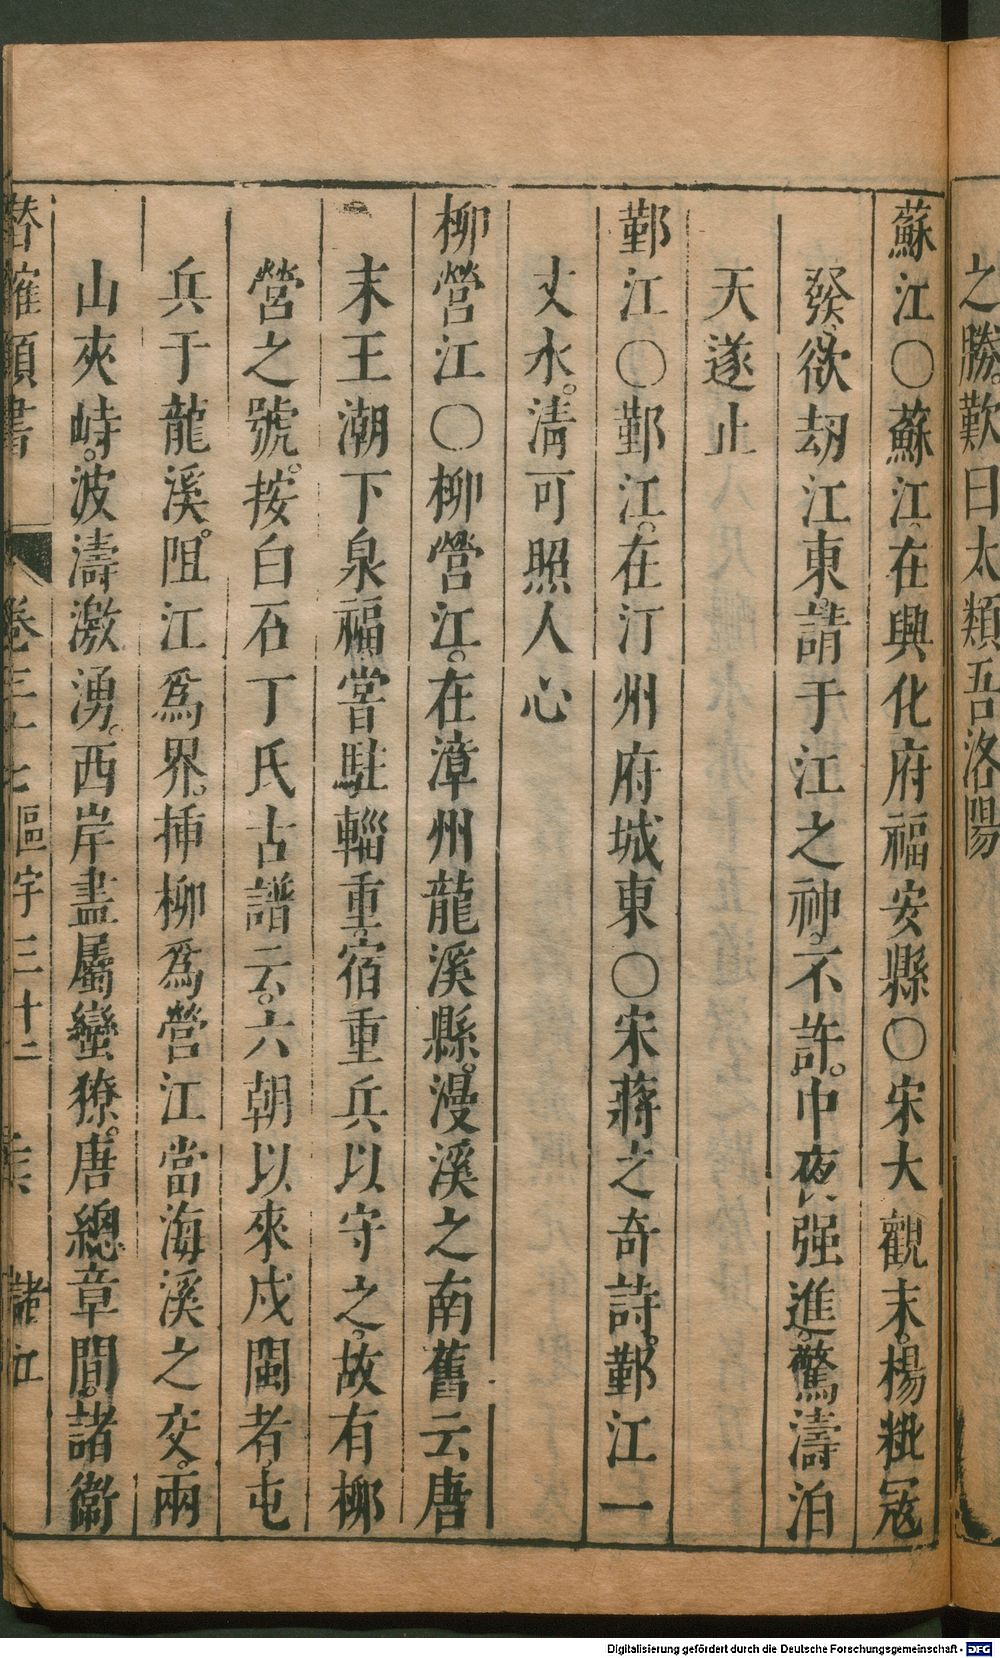 之勝。歎曰太類吾洛陽
蘇江○蘇江。在興化府福安縣○宋大觀末。楊𥹥寇
發、欲刼江東。請于江之神。不許。中夜强進。驚濤泊
天遂止
鄞江○鄞江。在汀州府城東○宋蔣之奇詩。鄞江一
丈水。清可照人心
柳營江○柳營江。在漳州龍溪縣。漫溪之南舊云唐
末王潮下泉福、嘗駐輜重。宿重兵以守之。故有柳
營之號。按白石丁氏古譜云。六朝以來戍閩者。屯
兵于龍溪。阻江爲界。揷柳爲營江當海溪之交。兩
山夾峙。波濤激湧。西岸盡屬蠻獠。唐總章間。諸衞
潛確類書 卷三十七區宇三十二 諸江
Digitalisierung gefördert durch die Deutsche Forschungsgemeinschaft - DFG